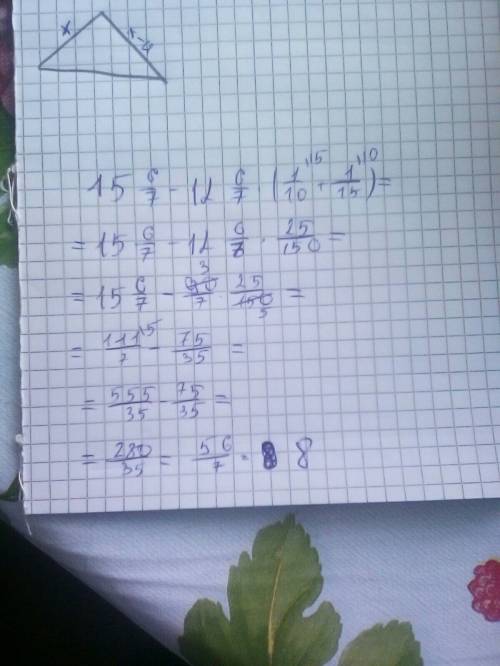 x x-4
15 6/7 - 12 6/7 · (1/10 \15 + 1/15 \10) =
= 15 6/7 - 12 6/7 · 25/150 =
= 15 6/7 - 90/7 3 · 25/150 5 =
= 111/7 \5 - 75/35 =
= 555/35 - 75/35 =
= 280/35 = 56/7 = 8